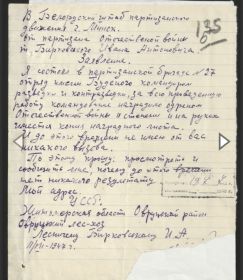 В Белорусский штаб партизанского
движения г. Минск.
от партизана Отечественной войны
т. Бирковского Ивана Антоновича
Заявление.
Я состоял в партизанской бригаде №27
отряд имени командиром
разведки и контрразведки, за всю проведенную
работу командование наградило орденом
Отечественной войны II степени и на руках
имеется копия наградного листа.
И до этого времени не имею от вас
никакого вызова.
По этому прошу: просмотреть и
сообщить мне, почему до этого времени
нет никакого результату
Мой адрес.
УССР.
Житомерская область Овруцкий район
Овруцкий лес-хоз
Лесничему Бирковскому И.А
1947 г.
135